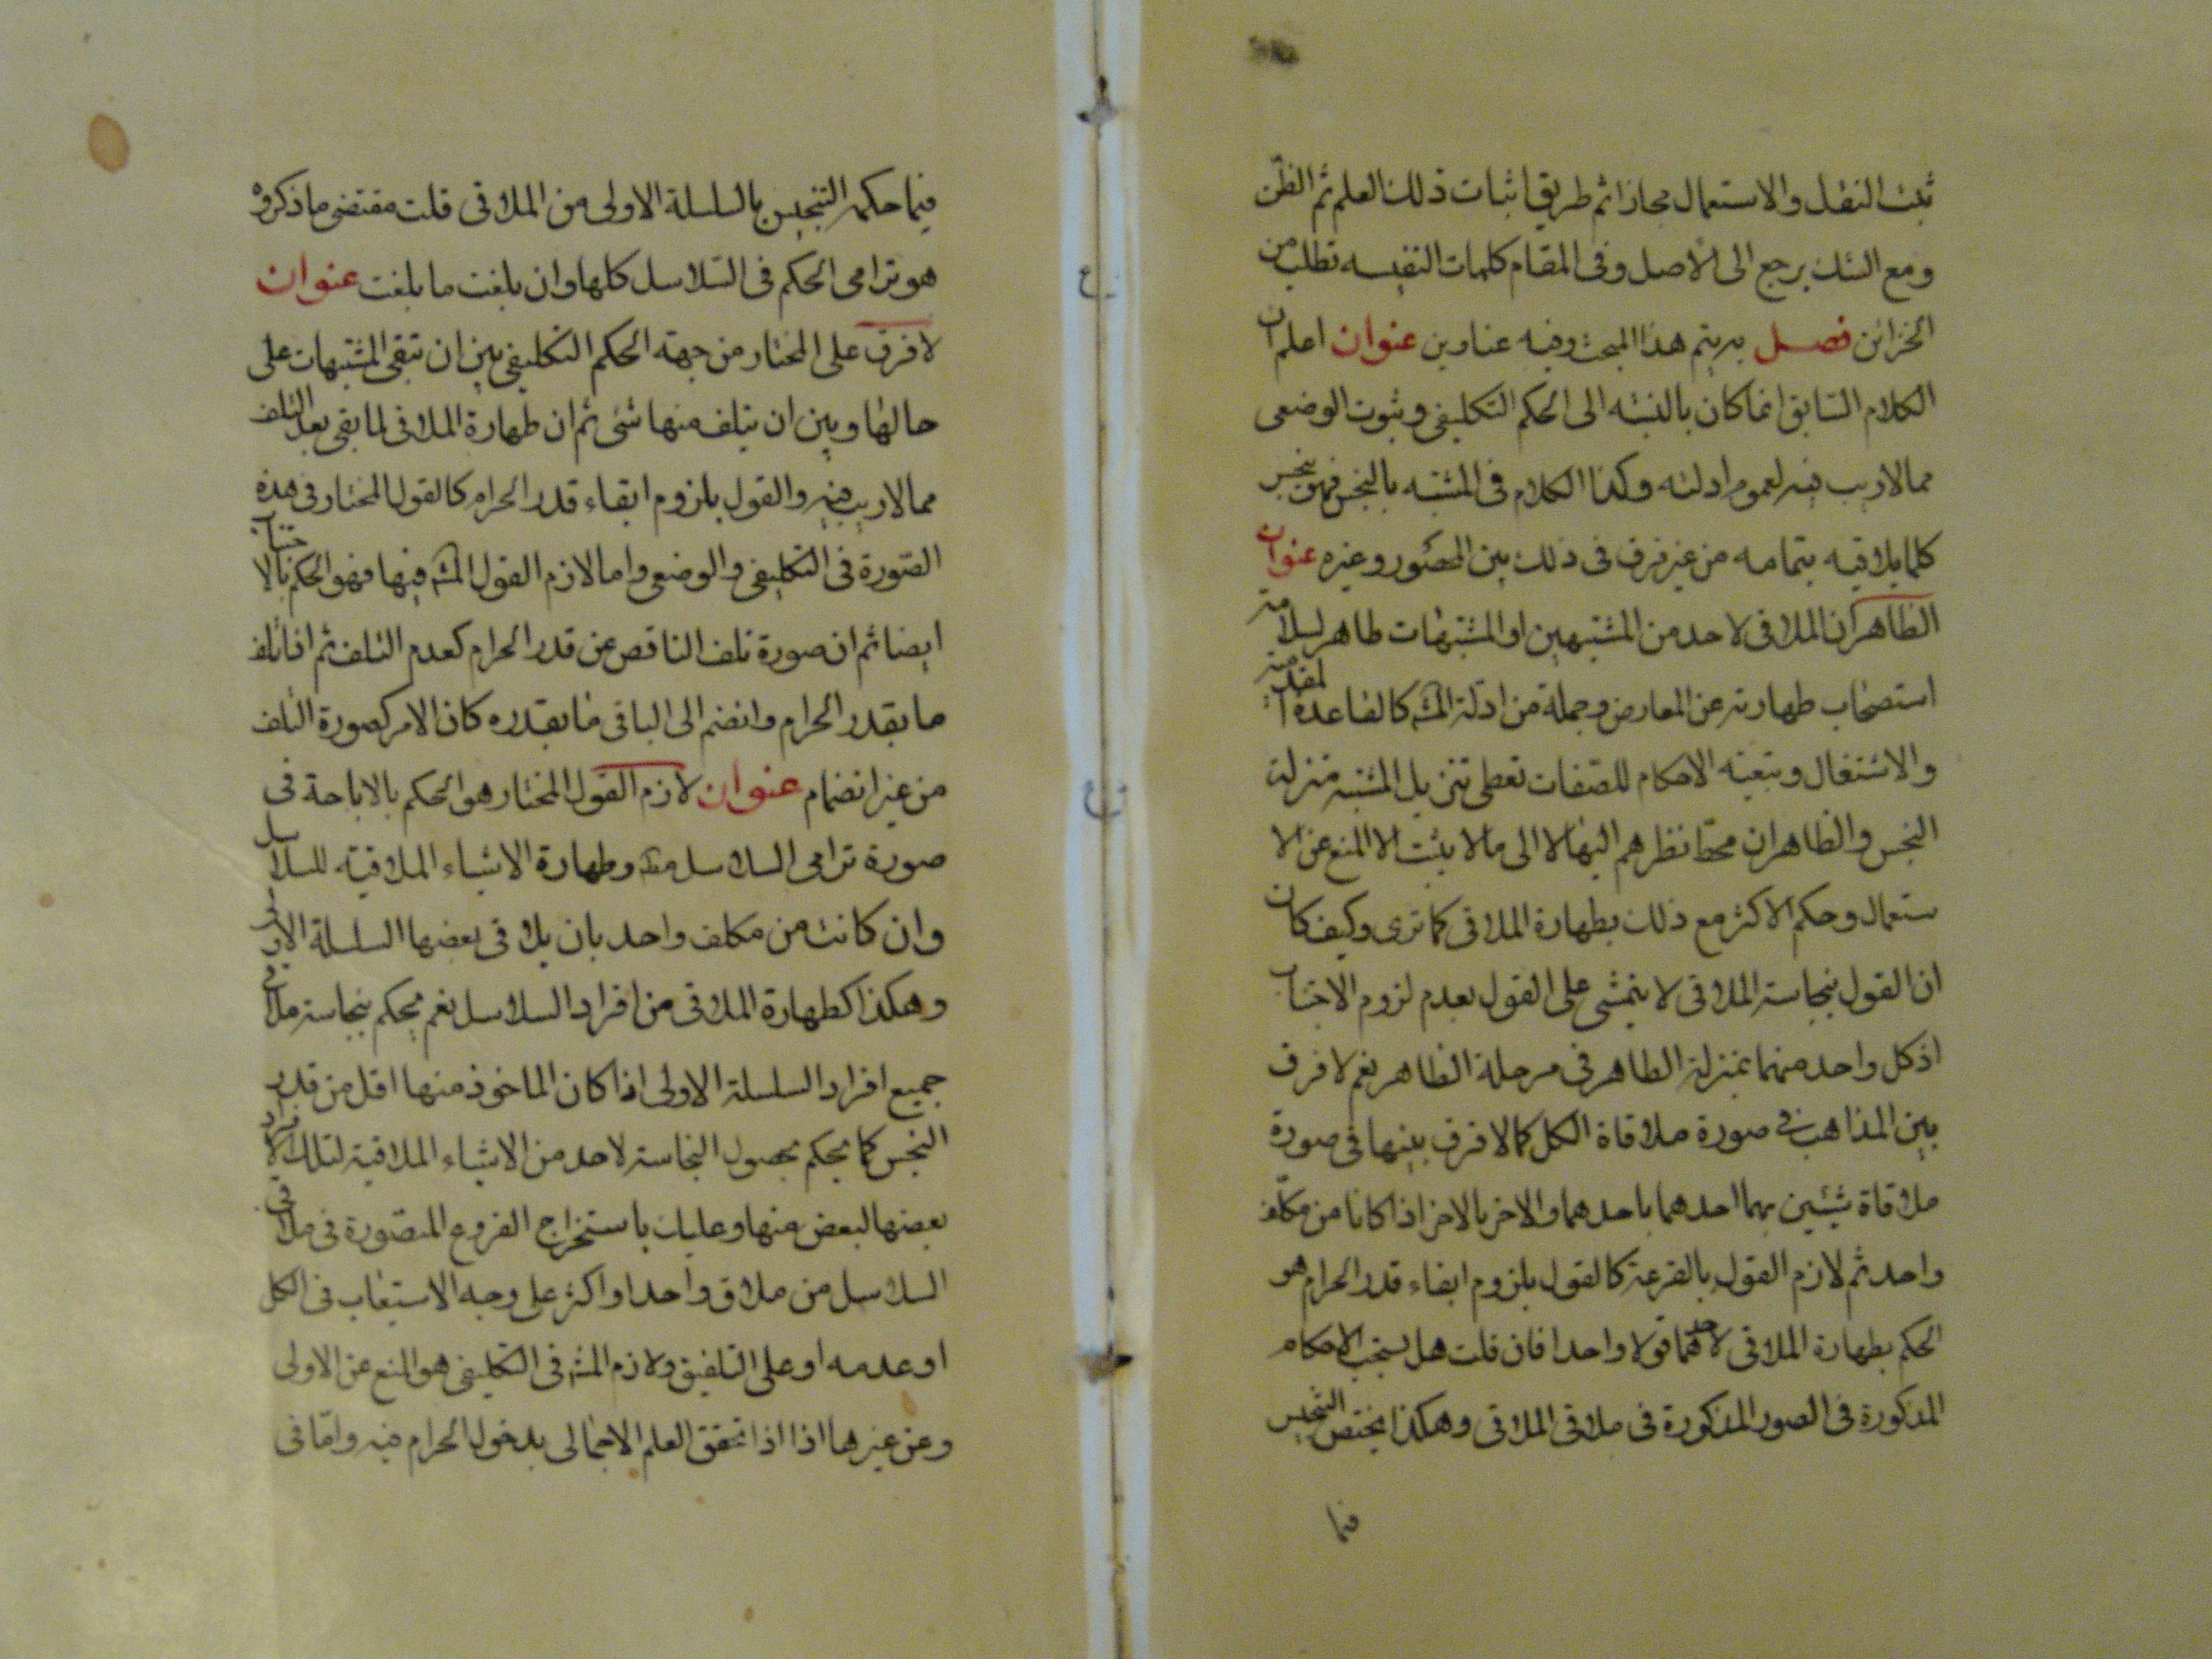 ثبت النقل والاستعمال مجازا ثم طريق اثبات ذلك العلم ثم الظن
ومع الشك يرجع الى الاصل وفى المقام كلمات النفيسه تطلب من
الخزائن فصل به يتم هذا المبحث وفيه عناوين عنوان اعلم ان
الكلام السابق انما كان بالنسبه الى الحكم التكليفى وثبوت الوضعى
مما لا ريب فيه لعموم ادلته وكذا الكلام فى المشتبه بالنجس فهو ينجس
كلما يلاقيه بتمامه من غير فرق فى ذلك بين المحصور وغيره عنوان
الظاهر ان الملاقى لاحد من المشتبهين او المشتبهات طاهر لسلامة
استصحاب طهارته عن المعارض وجملة من ادلة المشه كالقاعدة المقدمية
والاشتغال وتبعية الاحكام للصفات تعطى تنزيل المشتبه منزلة
النجس والظاهر ان محط نظرهم اليها لا الى ما لا يثبت الا المنع عن الا
ستعمال وحكم الاكثر مع ذلك بطهارة الملاقى كما ترى وكيف كان
ان القول بنجاسة الملاقى لا يتمشى على القول بعدم لزوم الاجتناب
اذ كل واحد منهما بمنزلة الطاهر فى مرحلة الظاهر نعم لا فرق
بين المذاهب فى صورة ملاقاة الكل كما لا فرق بينها فى صورة
ملاقاة شيئين بهما احدهما باحدهما والاخر بالاخر اذا كانا من مكلف
واحد ثم لازم القول بالقرعة كالقول بلزوم ابقاء قدر الحرام هو
الحكم بطهارة الملاقى لاحدهما قولا واحدا فان قلت هل يسحب الاحكام
المذكورة فى الصور المذكورة فى ملاقى الملاقى وهكذا يختص التنجيس
فيما
فيما حكمه التنجيس بالسلسلة الاولى من الملاقى قلت مقتضى ما ذكروه
هو ترامى الحكم فى السلاسل كلها وان بلغت ما بلغت عنوان
لا فرق على المختار من جهة الحكم التكليفى بين ان تبقى المشتبهات على
حالها وبين ان يتلف منها شئ ثم ان طهارة الملاقى لما بقى بعد التلف
مما لا ريب فيه والقول بلزوم ابقاء قدر الحرام كالقول المختار فى هذه
الصورة فى التكليفى والوضعى واما لازم القول المشه فيها فهو الحكم بالاجتناب
ايضا ثم ان صورة تلف الناقص عن قدر الحرام كعدم التلف ثم اذا تلف
ما بقدر الحرام وانضم الى الباقى ما بقدره كان الامر كصورة التلف
من غير انضمام عنوان لازم القول المختار هو الحكم بالاباحة فى
صورة ترامى السلاسل مط وطهارة الاشياء الملاقية للسلاسل
وان كانت من مكلف واحد بان يلاقى بعضها السلسلة الاولى
وهكذا كطهارة الملاقى من افراد السلاسل نعم يحكم بنجاسة ملاقى
جميع افراد السلسلة الاولى اذا كان الماخوذ منها اقل من قدر
النجس كما يحكم بحصول النجاسة لاحد من الاشياء الملاقية لتلك الافراد
بعضها لبعض منها وعليك باستخراج الفروع المتصورة فى ملاقى
السلاسل من ملاق واحد او اكثر على وجه الاستيعاب فى الكل
او عدمه او على التلفيق ولازم المشه فى التكليفى هو المنع عن الاولى
وعن غيرها اذا اذا تحقق العلم الاجمالى بدخول الحرام فيه واما فى